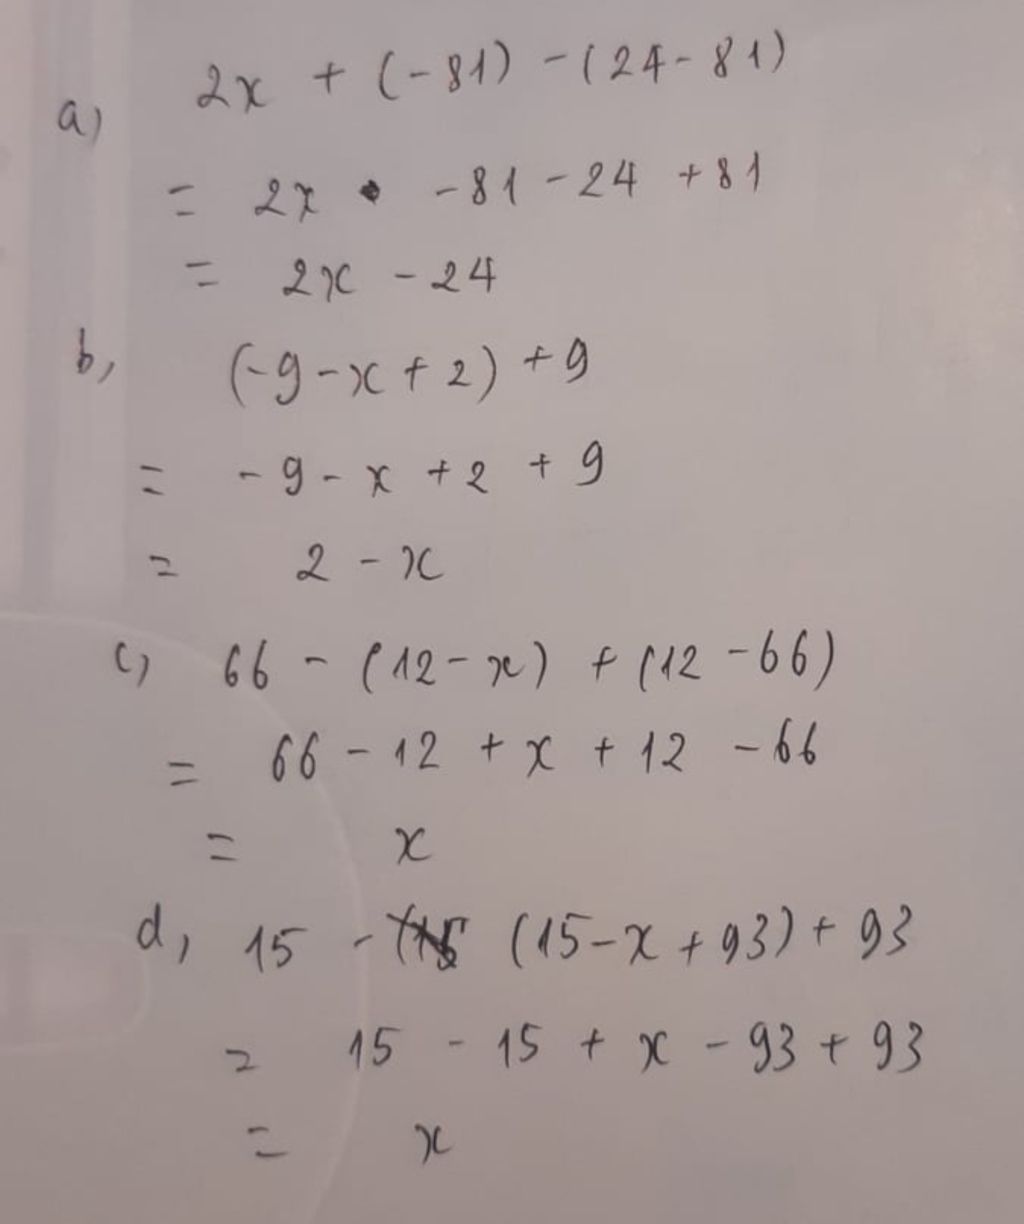 a) 2x + (-81) - (24 - 81)
= 2x - 81 - 24 + 81
= 2x - 24
b, (-9 - x + 2) + 9
= -9 - x + 2 + 9
= 2 - x
c) 66 - (12 - x) + (12 - 66)
= 66 - 12 + x + 12 - 66
= x
d, 15 - (15 - x + 93) + 93
= 15 - 15 + x - 93 + 93
= x